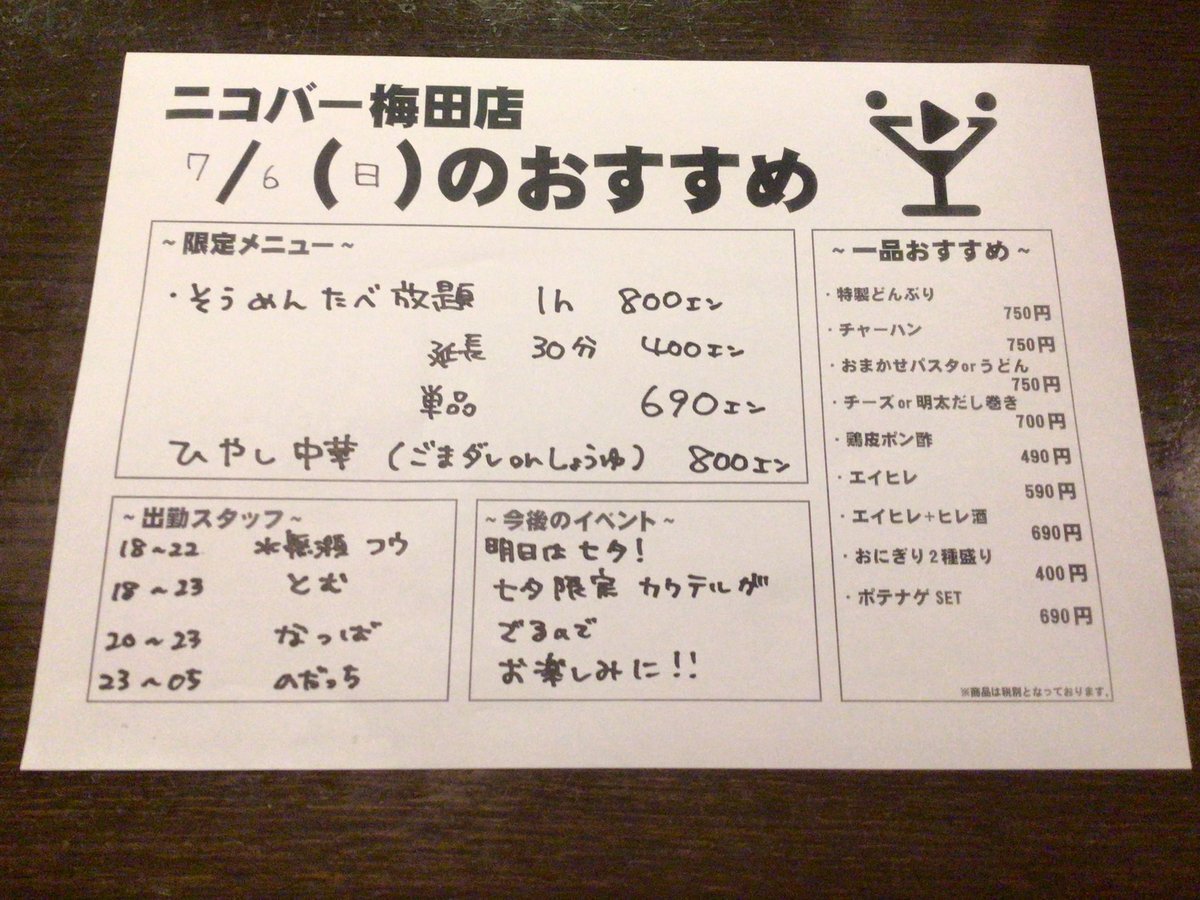 ニコバー梅田店
7/6(日)のおすすめ
~限定メニュー~
・そうめんたべ放題 1h 800エン
延長 30分 400エン
単品 690エン
ひやし中華(ごまダレorしょうゆ) 800エン
~出勤スタッフ~
18~22 水無瀬コウ
18~23 とむ
20~23 なっぱ
23~05 のだっち
~今後のイベント~
明日は七夕!
七夕限定カクテルが
でるので
お楽しみに!!
~一品おすすめ~
・特製どんぶり
750円
・チャーハン
750円
・おまかせパスタorうどん
750円
・チーズor明太だし巻き
700円
・鶏皮ポン酢
490円
・エイヒレ
590円
・エイヒレ+ヒレ酒
690円
・おにぎり2種盛り
400円
・ポテナゲSET
690円
※商品は税別となっております。